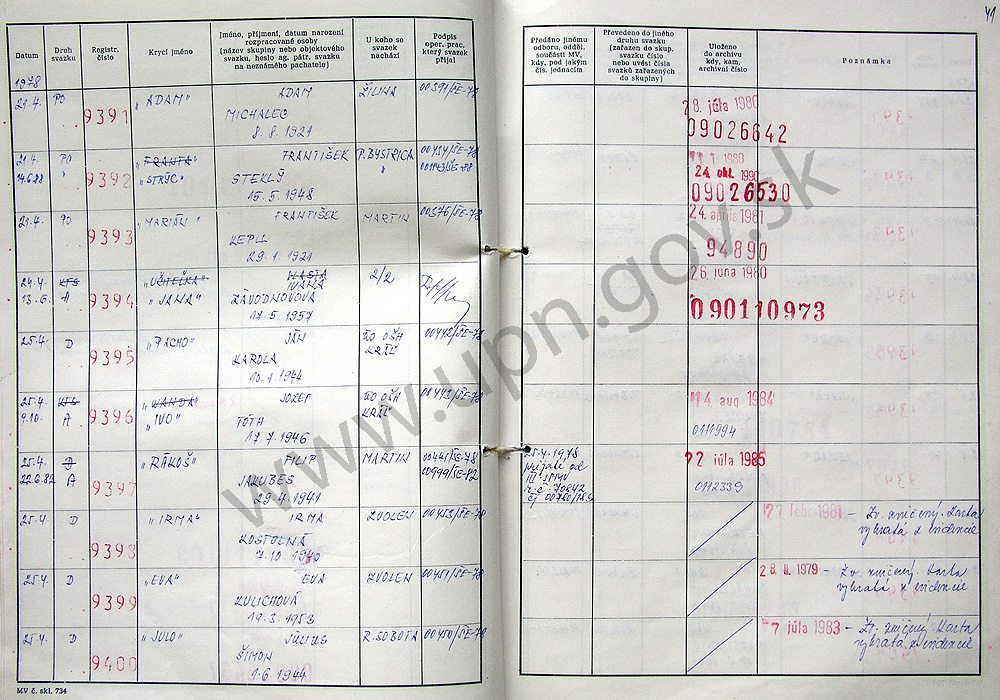 41
Datum
Druh svazku
Registr. číslo
Krycí jméno
Jméno, příjmení, datum narození
rozpracované osoby
(název skupiny nebo objektového
svazku, heslo ag. pátr. svazku
na neznámého pachatele)
U koho se
svazek
nachází
Podpis
oper. prac.
který svazek
přijal
Předáno jinému
odboru, odděl.
součásti MV,
kdy, pod jakým
čís. jednacím
Převedeno do jiného
druhu svazku
(zařazen do skup.
svazku číslo
nebo uvést čísla
svazků zařazených
do skupiny)
Uloženo
do archivu
kdy, kam,
archivní číslo
Poznámka
1978
21.4. PO 9391 "ADAM" ADAM ŽILINA 00391/SE-78
MICHALEC
8.8.1921
28. júla 1980
09026642
21.4. PO 9392 "FRANTA" FRANTIŠEK P. BYSTRICA
14.6.88 " "STRÝC" STEKLÝ "
15.5.1948
1980
24. okt. 1990
09026530
21.4. PO 9393 "MARIÁN" FRANTIŠEK MARTIN 00376/SE-78
29.1.1921
24. apríla 1981
94890
24.4. KFS 9394 "UČITEĽKA" VLASTA 2/2
IVANA
13.6. A "JANA" ZÁVODNOVOVÁ
17.5.1957
26. júna 1980
090110973
25.4. D 9395 "PACHO" JÁN ŠO OŠH 00442/SE-78
KAROLA KRÁĽ
10.1.1944
25.4. KFS 9396 "WANDA" JOZEF ŠO OŠH 00443/SE-78
9.10. A "IVO" TÓTH KRÁĽ
17.7.1946
14 aug. 1984
0111994
25.4. D 9397 "RÁKOŠ" FILIP MARTIN 00441/SE-78
22.6.82 A JAKUBES 00999/SE-82
29.4.1941
25.4.1978
prijaté od
r.č. 70842
22 júla 1985
0112339
25.4. D 9398 "IRMA" IRMA ZVOLEN 00453/SE-78
KOSTOLNÁ
7.10.1940
27 febr. 1981 – Zv. zničený. Karta
vybratá z evidencie
25.4. D 9399 "EVA" EVA ZVOLEN 00451/SE-78
KULICHOVÁ
19.3.1953
28. II. 1979 – Zv. zničený. Karta
vybratá z evidencie
25.4. D 9400 "JULO" JÚLIUS R. SOBOTA 00450/SE-78
ŠIMON
1.6.1944
7 júla 1983 – Zv. zničený. Karta
vybratá z evidencie
MV č. skl. 734
www.upn.gov.sk